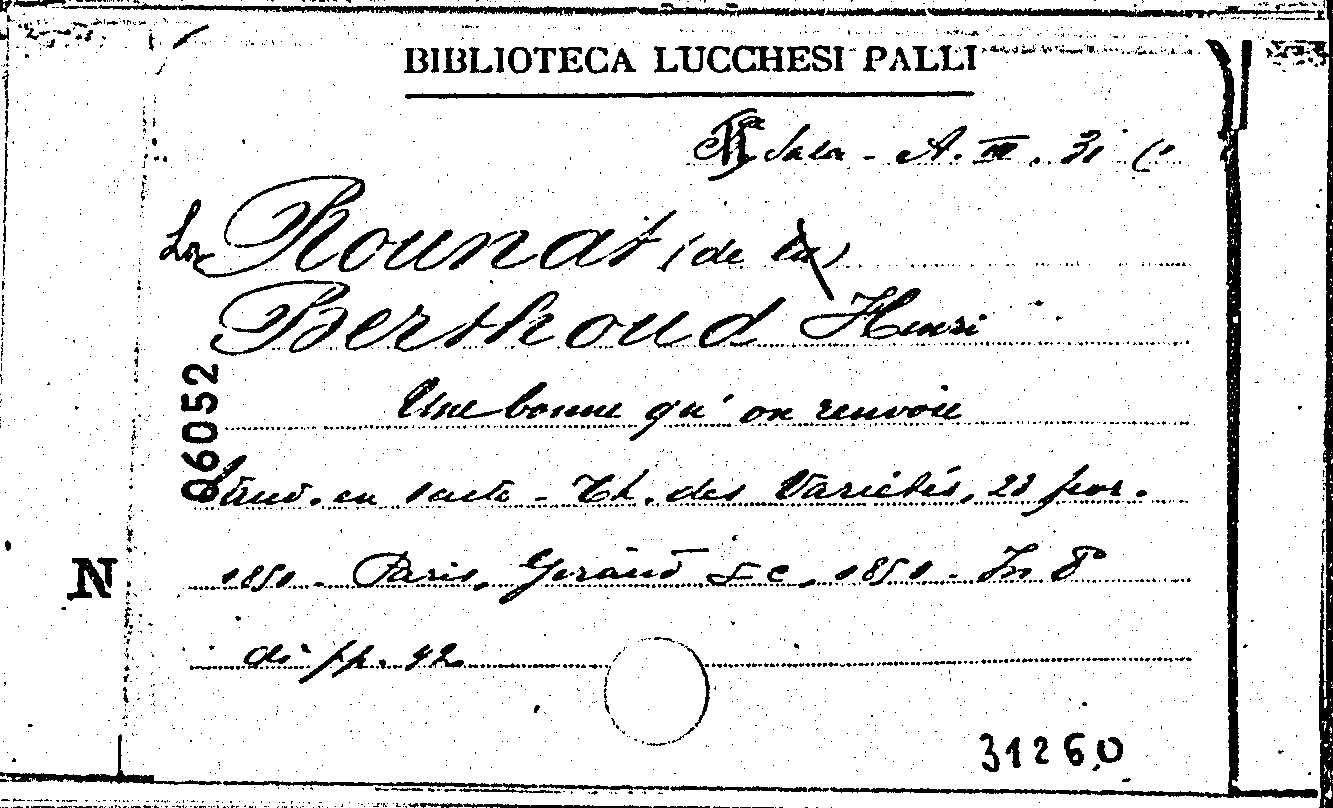 BIBLIOTECA LUCCHESI PALLI
Sala - A. III. 31 (1
La Rounat (de la)
Berthoud Henri
Une bonne qu'on renvoie
96052
Vaud. en 1 acte - Th. des Variétés, 28 fevr.
1851 - Paris, Giraud &c, 1851 - In 8º
di pp. 42
N
31260